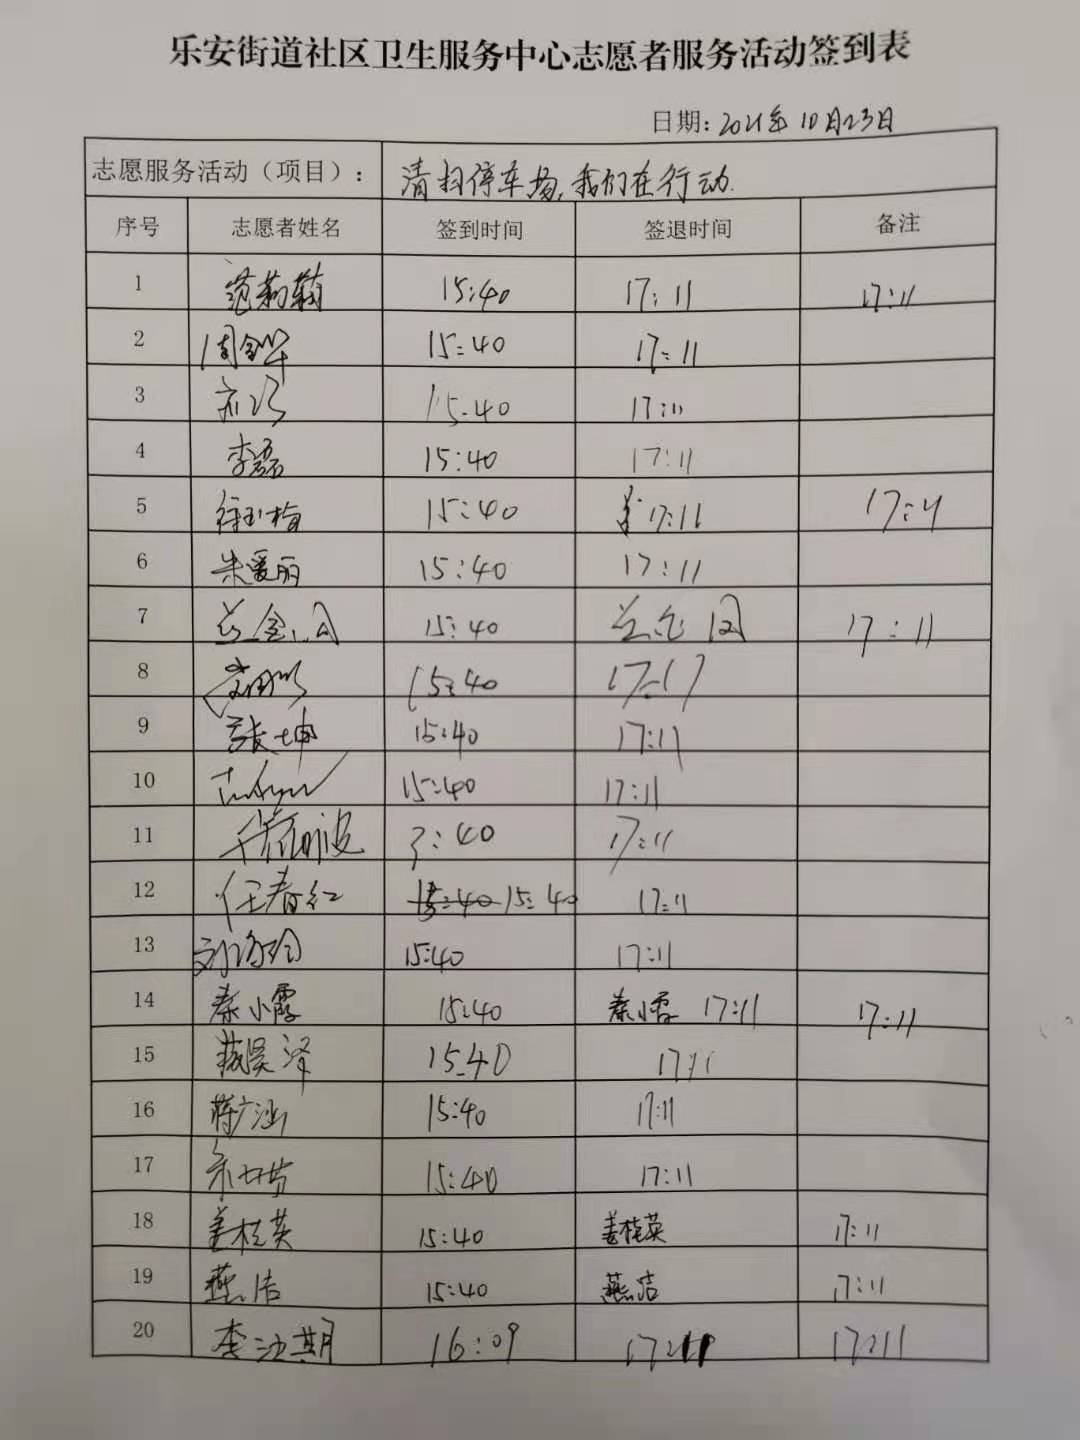 乐安街道社区卫生服务中心志愿者服务活动签到表
日期：2021年10月23日
志愿服务活动（项目）： 清扫停车场,我们在行动.
序号 志愿者姓名 签到时间 签退时间 备注
1 范莉娟 15:40 17:11 17:11
2 周金华 15:40 17:11
3 15:40 17:11
4 李磊 15:40 17:11
5 徐玉梅 15:40 17:11 17:11
6 朱爱丽 15:40 17:11
7 15:40 17:11
8 15:40 17:17
9 张坤 15:40 17:11
10 15:40 17:11
11 3:40 17:11
12 任春红 15:40 15:40 17:11
13 15:40 17:11
14 秦小霞 15:40 秦小霞 17:11 17:11
15 15:40 17:11
16 蒋广涵 15:40 17:11
17 15:40 17:11
18 姜桂英 15:40 姜桂英 17:11
19 燕洁 15:40 燕洁 17:11
20 16:09 17:11 17:11